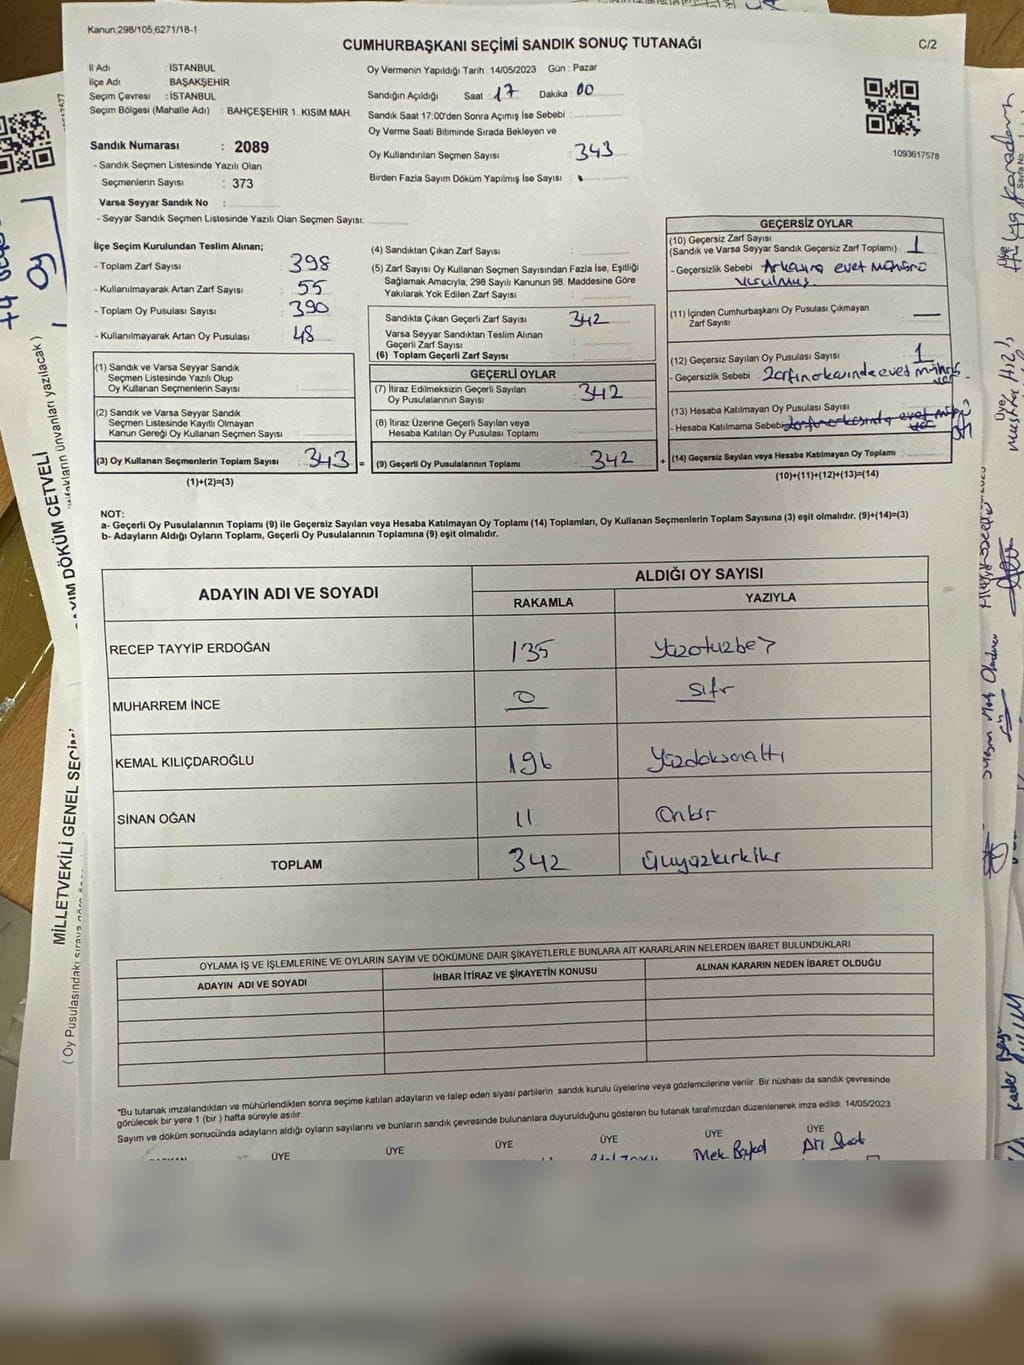 Kanun;298/105,6271/18-1
CUMHURBAŞKANI SEÇİMİ SANDIK SONUÇ TUTANAĞI
C/2
İl Adı : İSTANBUL
İlçe Adı : BAŞAKŞEHİR
Seçim Çevresi : İSTANBUL
Seçim Bölgesi (Mahalle Adı) : BAHÇEŞEHİR 1. KISIM MAH.
Sandık Numarası : 2089
- Sandık Seçmen Listesinde Yazılı Olan
Seçmenlerin Sayısı : 373
Varsa Seyyar Sandık No :
- Seyyar Sandık Seçmen Listesinde Yazılı Olan Seçmen Sayısı:
Oy Vermenin Yapıldığı Tarih : 14/05/2023 Gün : Pazar
Sandığın Açıldığı Saat : 17 Dakika : 00
Sandık Saat 17:00'den Sonra Açımış İse Sebebi :
Oy Verme Saati Bitiminde Sırada Bekleyen ve
Oy Kullandırılan Seçmen Sayısı : 343
Birden Fazla Sayım Döküm Yapılmış İse Sayısı :
1093617578
İlçe Seçim Kurulundan Teslim Alınan;
- Toplam Zarf Sayısı : 398
- Kullanılmayarak Artan Zarf Sayısı : 55
- Toplam Oy Pusulası Sayısı : 390
- Kullanılmayarak Artan Oy Pusulası : 48
(1) Sandık ve Varsa Seyyar Sandık
Seçmen Listesinde Yazılı Olup
Oy Kullanan Seçmenlerin Sayısı :
(2) Sandık ve Varsa Seyyar Sandık
Seçmen Listesinde Kayıtlı Olmayan
Kanun Gereği Oy Kullanan Seçmen Sayısı :
(3) Oy Kullanan Seçmenlerin Toplam Sayısı : 343 =
(1)+(2)=(3)
(4) Sandıktan Çıkan Zarf Sayısı :
(5) Zarf Sayısı Oy Kullanan Seçmen Sayısından Fazla İse, Eşitliği
Sağlamak Amacıyla; 298 Sayılı Kanunun 98. Maddesine Göre
Yakılarak Yok Edilen Zarf Sayısı :
Sandıkta Çıkan Geçerli Zarf Sayısı : 342
Varsa Seyyar Sandıktan Teslim Alınan
Geçerli Zarf Sayısı :
(6) Toplam Geçerli Zarf Sayısı
GEÇERLİ OYLAR
(7) İtiraz Edilmeksizin Geçerli Sayılan
Oy Pusulalarının Sayısı : 342
(8) İtiraz Üzerine Geçerli Sayılan veya
Hesaba Katılan Oy Pusulası Toplamı :
(9) Geçerli Oy Pusulalarının Toplamı : 342 +
GEÇERSİZ OYLAR
(10) Geçersiz Zarf Sayısı
(Sandık ve Varsa Seyyar Sandık Geçersiz Zarf Toplamı) 1
- Geçersizlik Sebebi : Arkasına evet mührü
vurulmuş
(11) İçinden Cumhurbaşkanı Oy Pusulası Çıkmayan
Zarf Sayısı : —
(12) Geçersiz Sayılan Oy Pusulası Sayısı : 1
- Geçersizlik Sebebi :
(13) Hesaba Katılmayan Oy Pusulası Sayısı :
- Hesaba Katılmama Sebebi
(14) Geçersiz Sayılan veya Hesaba Katılmayan Oy Toplamı :
(10)+(11)+(12)+(13)=(14)
NOT:
a- Geçerli Oy Pusulalarının Toplamı (9) ile Geçersiz Sayılan veya Hesaba Katılmayan Oy Toplamı (14) Toplamları, Oy Kullanan Seçmenlerin Toplam Sayısına (3) eşit olmalıdır. (9)+(14)=(3)
b- Adayların Aldığı Oyların Toplamı, Geçerli Oy Pusulalarının Toplamına (9) eşit olmalıdır.
ADAYIN ADI VE SOYADI
ALDIĞI OY SAYISI
RAKAMLA YAZIYLA
RECEP TAYYİP ERDOĞAN 135 Yüzotuzbeş
MUHARREM İNCE 0 Sıfır
KEMAL KILIÇDAROĞLU 196 Yüzdoksanaltı
SİNAN OĞAN 11 Onbir
TOPLAM 342 Üçyüzkırkiki
OYLAMA İŞ VE İŞLEMLERİNE VE OYLARIN SAYIM VE DÖKÜMÜNE DAİR ŞİKAYETLERLE BUNLARA AİT KARARLARIN NELERDEN İBARET BULUNDUKLARI
ADAYIN ADI VE SOYADI İHBAR İTİRAZ VE ŞİKAYETİN KONUSU ALINAN KARARIN NEDEN İBARET OLDUĞU
*Bu tutanak imzalandıktan ve mühürlendikten sonra seçime katılan adayların ve talep eden siyasi partilerin sandık kurulu üyelerine veya gözlemcilerine verilir. Bir nüshası da sandık çevresinde
görülecek bir yere 1 (bir ) hafta süreyle asılır.
Sayım ve döküm sonucunda adayların aldığı oyların sayılarını ve bunların sandık çevresinde bulunanlara duyurulduğunu gösteren bu tutanak tarafımızdan düzenlenerek imza edildi. 14/05/2023
ÜYE ÜYE ÜYE ÜYE ÜYE ÜYE
MİLLETVEKİLİ GENEL SEÇİM
SAYIM DÖKÜM CETVELİ
( Oy Pusulasındaki sıraya göre
ünvanları yazılacak )
oy